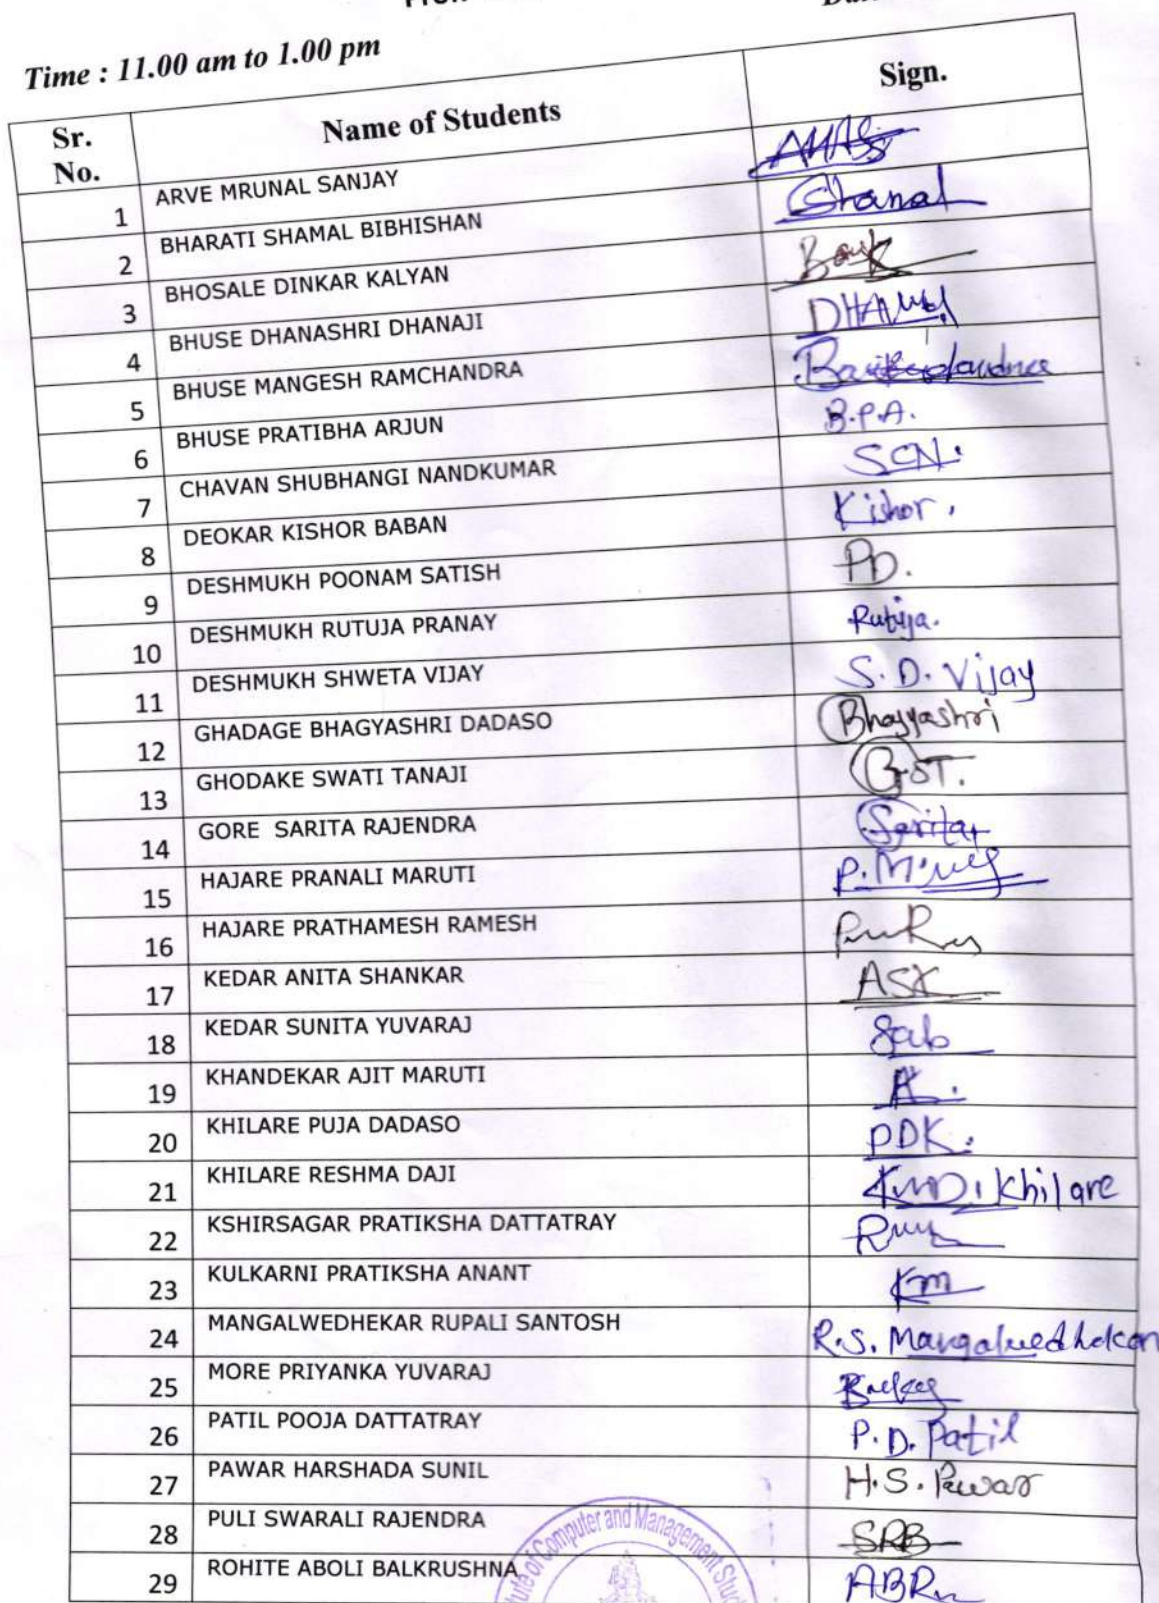 Time : 11.00 am to 1.00 pm
Sr. No. Name of Students Sign.
1 ARVE MRUNAL SANJAY
2 BHARATI SHAMAL BIBHISHAN Shamal
3 BHOSALE DINKAR KALYAN
4 BHUSE DHANASHRI DHANAJI
5 BHUSE MANGESH RAMCHANDRA
6 BHUSE PRATIBHA ARJUN B.P.A.
7 CHAVAN SHUBHANGI NANDKUMAR SCN.
8 DEOKAR KISHOR BABAN Kishor.
9 DESHMUKH POONAM SATISH PD.
10 DESHMUKH RUTUJA PRANAY Rutuja.
11 DESHMUKH SHWETA VIJAY S.D. Vijay
12 GHADAGE BHAGYASHRI DADASO Bhagyashri
13 GHODAKE SWATI TANAJI GST.
14 GORE SARITA RAJENDRA Sarita
15 HAJARE PRANALI MARUTI
16 HAJARE PRATHAMESH RAMESH
17 KEDAR ANITA SHANKAR ASK
18 KEDAR SUNITA YUVARAJ
19 KHANDEKAR AJIT MARUTI A.
20 KHILARE PUJA DADASO PDK.
21 KHILARE RESHMA DAJI Khilare
22 KSHIRSAGAR PRATIKSHA DATTATRAY
23 KULKARNI PRATIKSHA ANANT Km
24 MANGALWEDHEKAR RUPALI SANTOSH R.S. Mangalwedhekar
25 MORE PRIYANKA YUVARAJ
26 PATIL POOJA DATTATRAY P.D. Patil
27 PAWAR HARSHADA SUNIL H.S. Pawar
28 PULI SWARALI RAJENDRA SRB
29 ROHITE ABOLI BALKRUSHNA
of Computer and Management